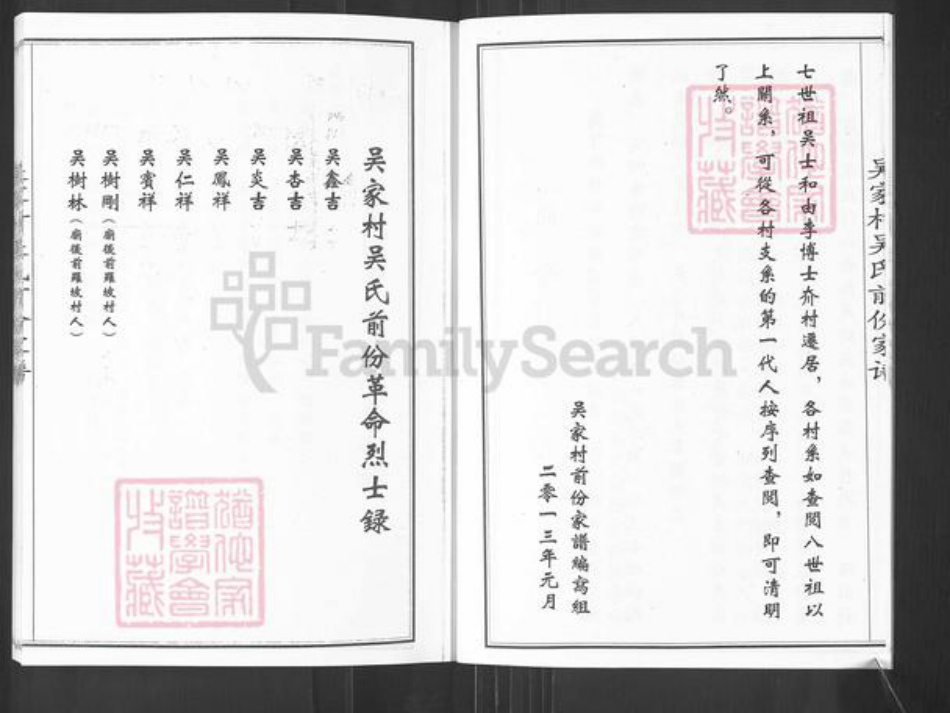 吴家村吴氏前份家谱
七世祖吴士和由李博士介村遷居，各村系如查閲八世祖以
上關系，可從各村支系的第一代人按序列查閲，即可清明
了然。
吴家村前份家譜編寫組
二零一三年元月
吴家村吴氏前份革命烈士録
吴鑫吉
吴杏吉
吴炎吉
吴鳳祥
吴仁祥
吴賓祥
吴樹剛（廟後前羅坡村人）
吴樹林（廟後前羅坡村人）
譜學會
收藏
FamilySearch